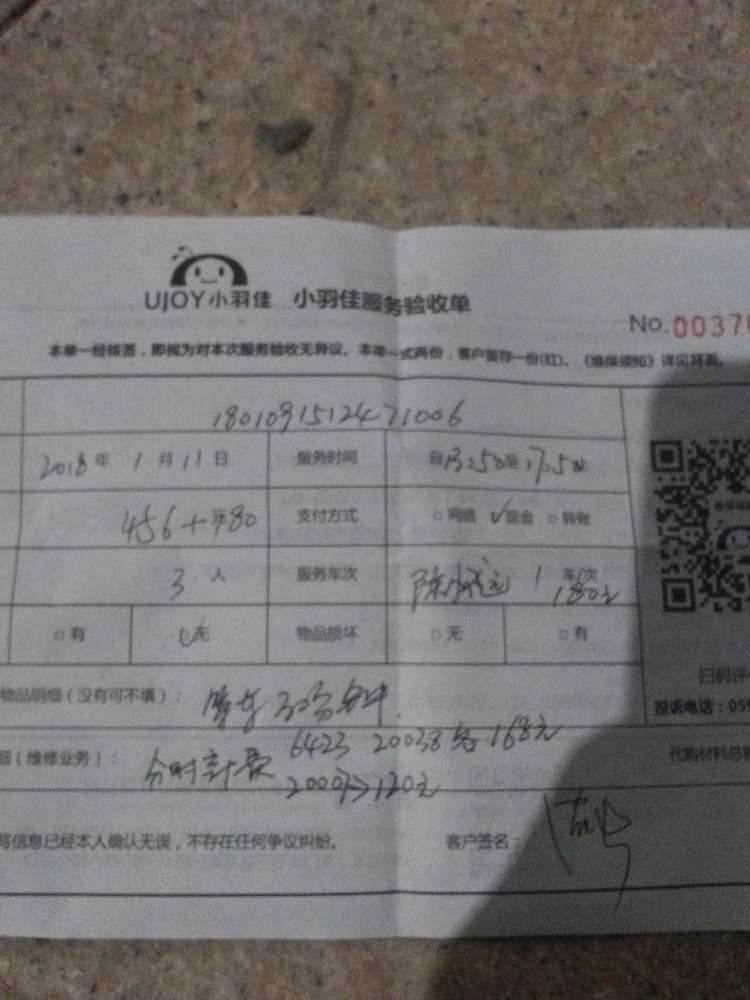 UJOY小羽佳 小羽佳服务验收单
No.0037
本单一经核签，即视为对本次服务验收无异议。本单一式两份，客户留存一份(红)。《维保须知》详见背面。
1801091512471006
2018年 1月11日 服务时间 自 至
456+ 80 支付方式 □网络 ✓现金 □转账
3人 服务车次 1 车/次
180元
□有 ✓无 物品损坏 □无 □有
扫码评
物品明细（没有可不填）：
投诉电话：059
细（维修业务）： 分时计费 6423 20038 168元
代购材料总
120元
写信息已经本人确认无误，不存在任何争议纠纷。 客户签名：